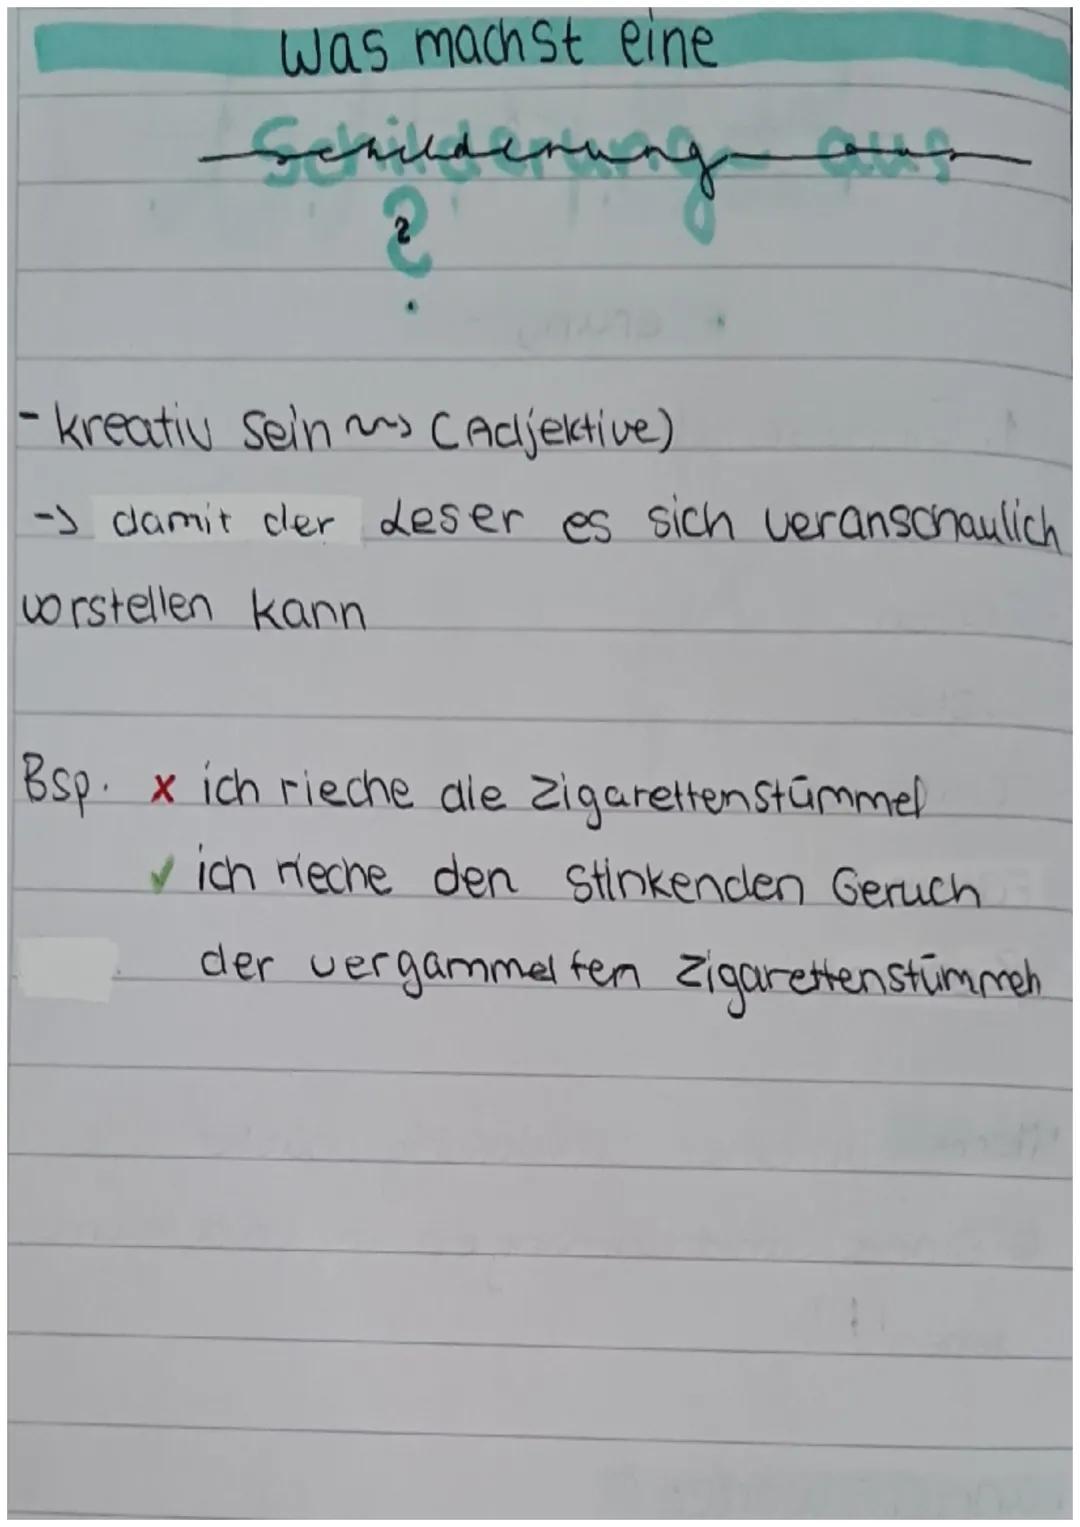 Was machst eine
Schilderung aus
?
- kreativ sein ~> (Adjektive)
-> damit der Leser es sich veranschaulich
vorstellen kann
Bsp. x ich rieche die Zigarettenstümmel
✓ ich rieche den stinkenden Geruch
der vergammelten Zigarettenstümmeln